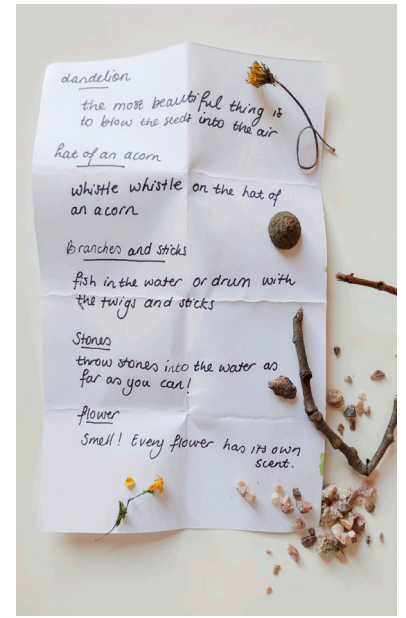 dandelion
the most beautiful thing is
to blow the seeds into the air
hat of an acorn
whistle whistle on the hat of
an acorn
Branches and sticks
fish in the water or drum with
the twigs and sticks
Stones
throw stones into the water as
far as you can!
flower
Smell! Every flower has its own
scent.